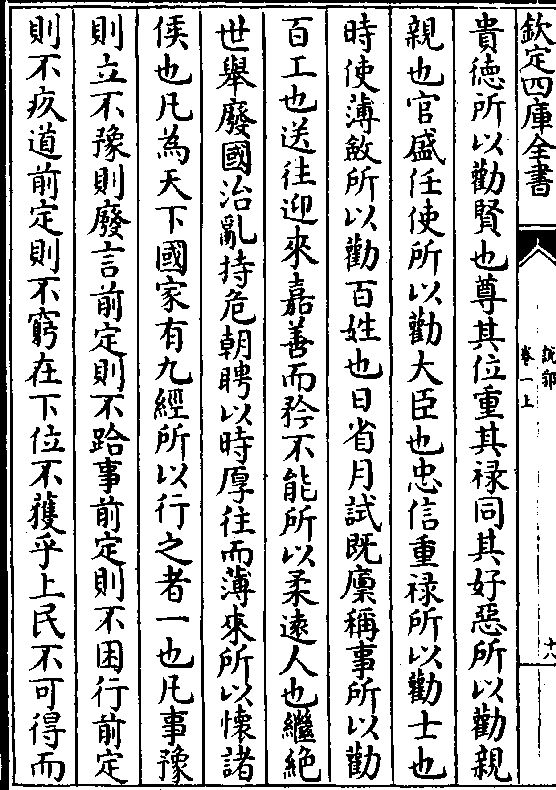 欽定四庫全書
說郛
卷一上
十六
貴徳所以勸賢也尊其位重其禄同其好惡所以勸親
親也官盛任使所以勸大臣也忠信重禄所以勸士也
時使薄斂所以勸百姓也日省月試既廩稱事所以勸
百工也送往迎來嘉善而矜不能所以柔逺人也繼絶
世舉廢國治亂持危朝聘以時厚往而薄來所以懷諸
侯也凡為天下國家有九經所以行之者一也凡事豫
則立不豫則廢言前定則不跲事前定則不困行前定
則不疚道前定則不窮在下位不獲乎上民不可得而